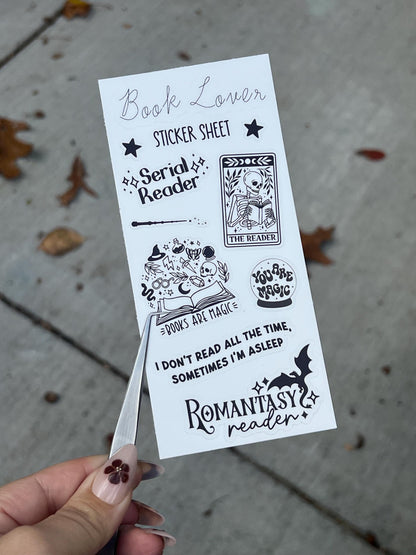 Book Lover
STICKER SHEET
Serial
Reader
THE READER
YOU ARE
MAGIC
BOOKS ARE MAGIC
I DON'T READ ALL THE TIME,
SOMETIMES I'M ASLEEP
ROMANTASY
reader